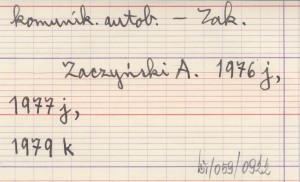 komunik. autob. – Zak.
Zaczyński A. 1976 j,
1977 j,
1979 k
/059/0922